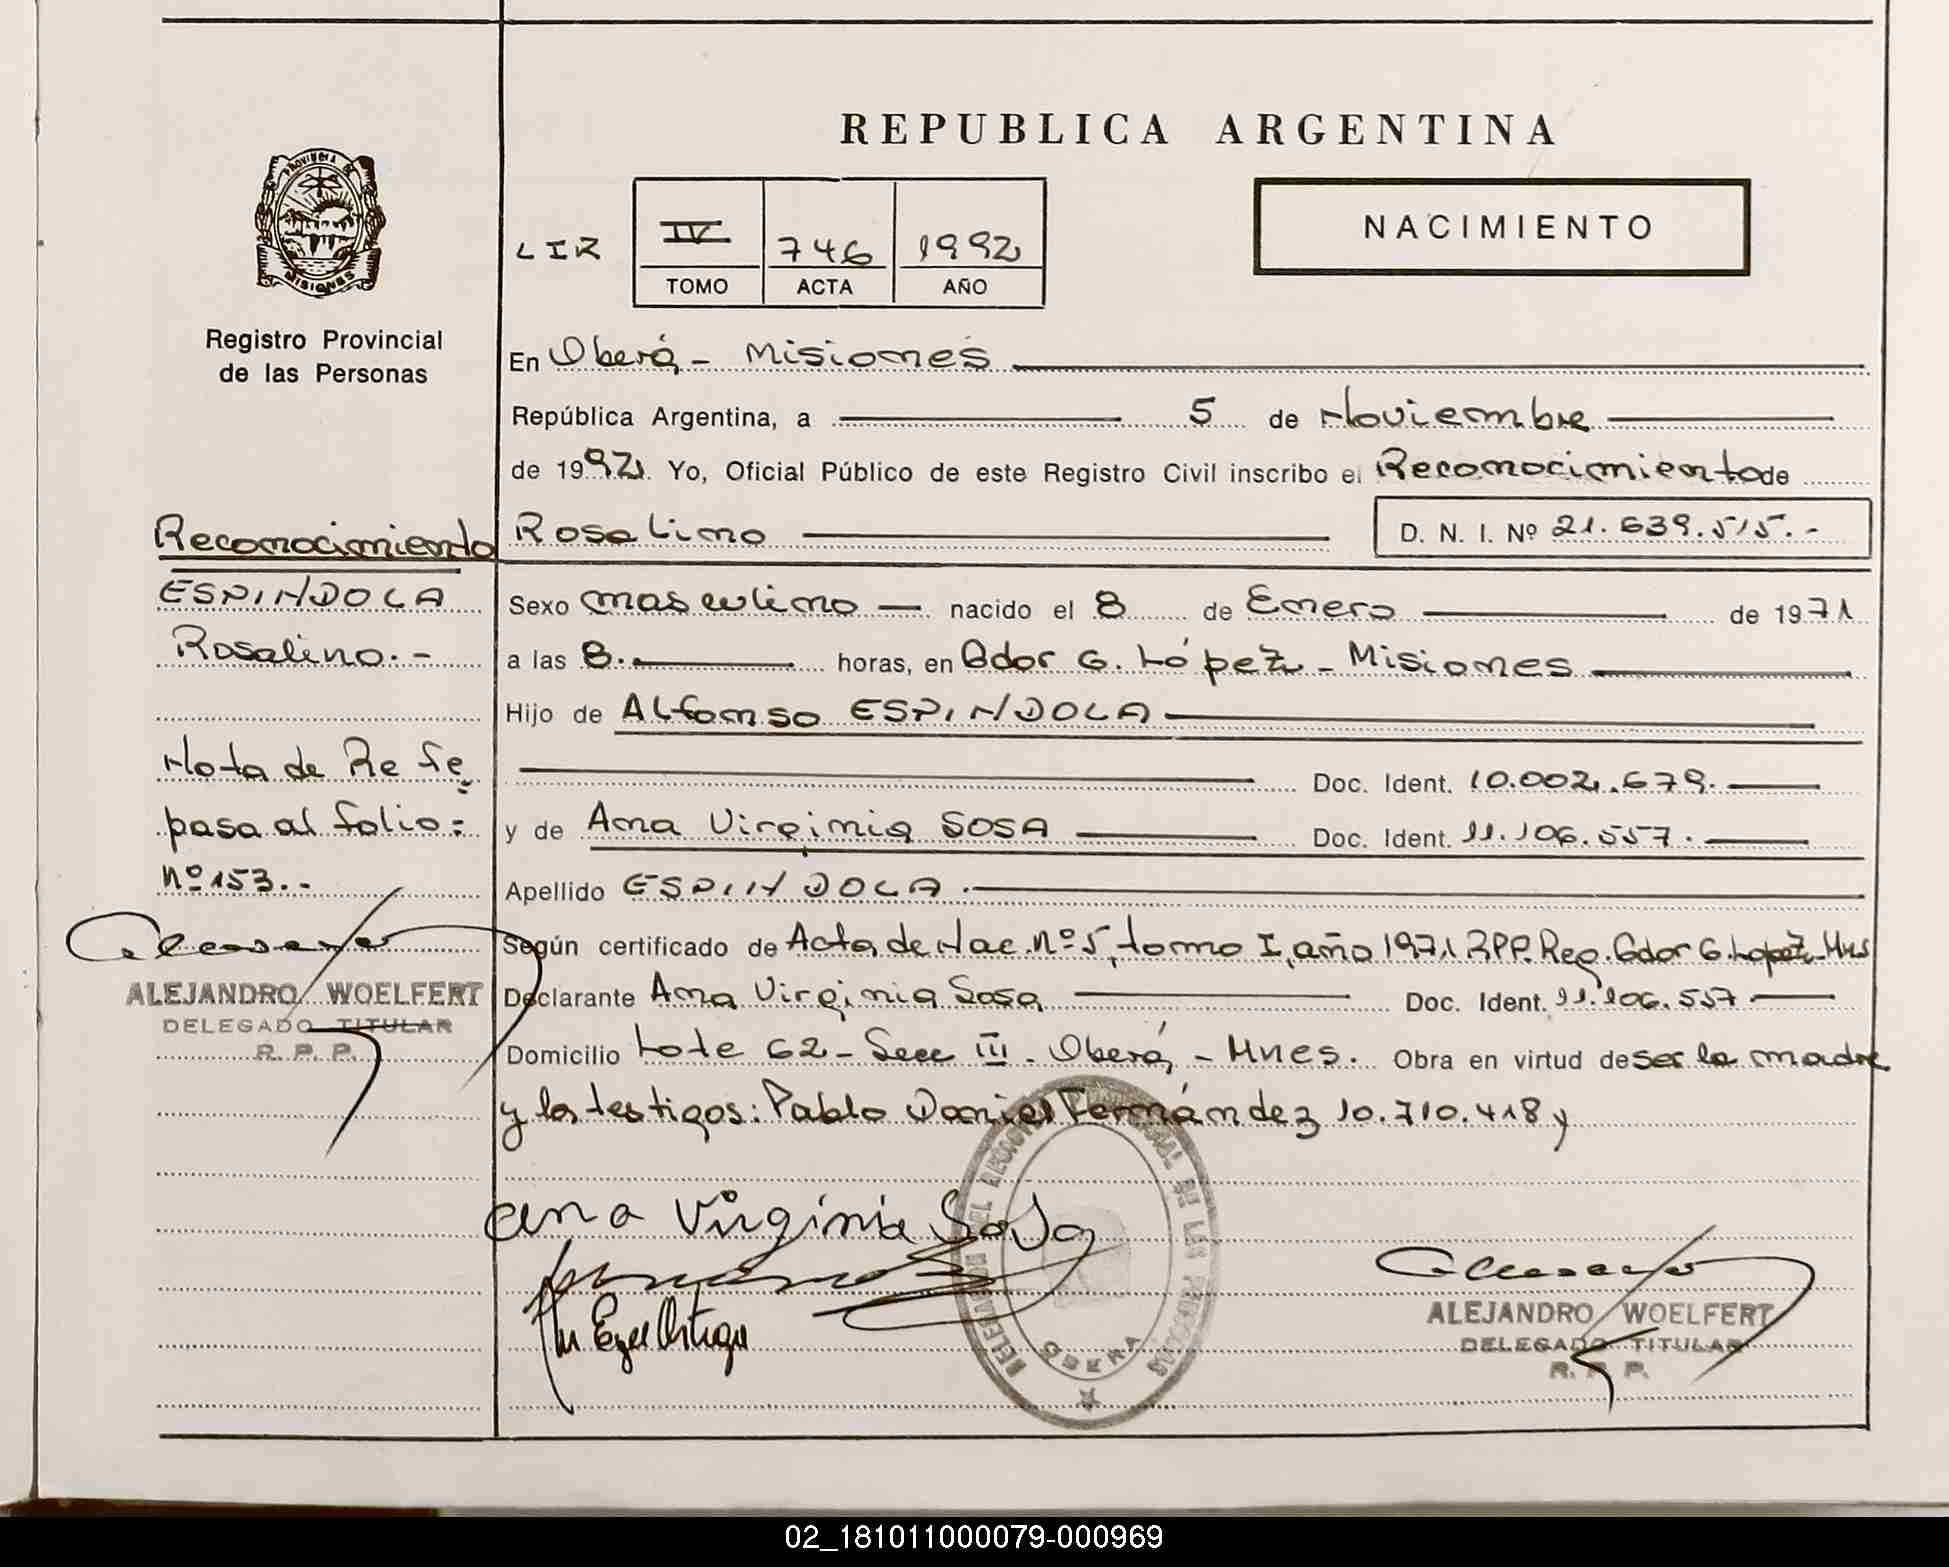 REPUBLICA ARGENTINA
PROVINCIA DE
MISIONES
Registro Provincial
de las Personas
LIR
IV 746 1992
TOMO ACTA AÑO
NACIMIENTO
En Oberá - Misiones
República Argentina, a 5 de Noviembre
de 1992. Yo, Oficial Público de este Registro Civil inscribo el Reconocimiento de
Rosalino D. N. I. Nº 21.639.515.-
Reconocimiento
ESPINDOLA
Rosalino.-
Nota de Refe
pasa al folio:
Nº 153.-
ALEJANDRO WOELFERT
DELEGADO TITULAR
R. P. P.
Sexo masculino nacido el 8 de Enero de 1971
a las 8. horas, en Gdor G. López - Misiones
Hijo de Alfonso ESPINDOLA
Doc. Ident. 10.002.679.
y de Ana Virginia SOSA Doc. Ident. 11.106.557.
Apellido ESPINDOLA.
Según certificado de Acta de Nac. Nº 5, tomo I, año 1971 RPP. Reg. Gdor G. Lopez - Mnes
Declarante Ana Virginia Sosa Doc. Ident. 11.106.557.
Domicilio Lote 62 - Secc III. Oberá - Mnes. Obra en virtud de ser la madre
y los testigos: Pablo Daniel Fernández 10.710.418 y
ana Virginia Sosa
OBERA
ALEJANDRO WOELFERT
DELEGADO TITULAR
R. P. P.
02_181011000079-000969